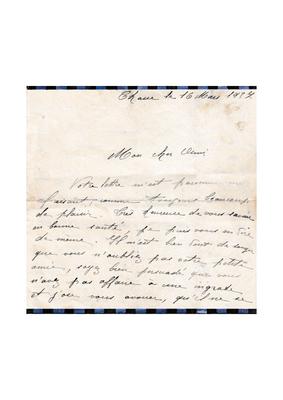 le 16 Mars 189
Mon cher Ami
Votre lettre m'est parvenue en
faisant comme toujours beaucoup
de plaisir. Très heureuse de vous savoir
en bonne santé, je puis vous en dire
de même. Il m'est bien doux de songer
que vous n'oubliez pas votre petite
amie, soyez bien persuadé que vous
n'avez pas affaire à une ingrate
et j'ose vous avouer, qu'il ne se